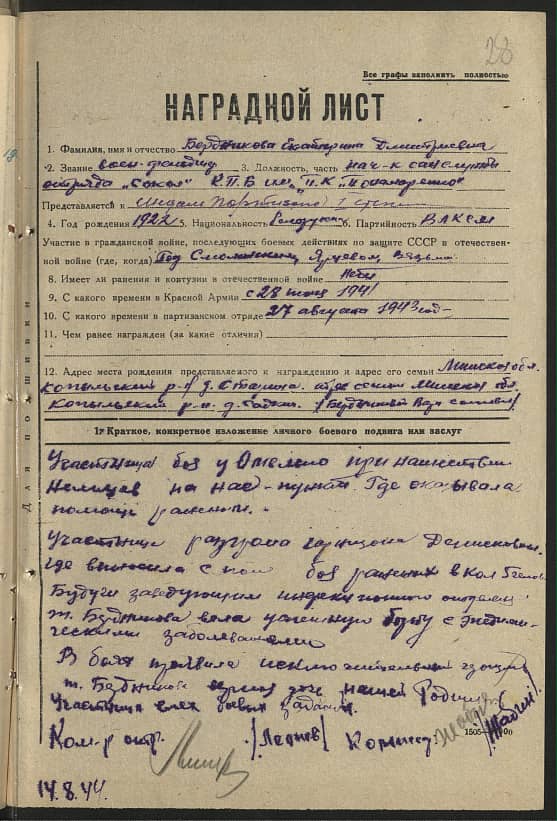 28
Все графы заполнить полностью
НАГРАДНОЙ ЛИСТ
1. Фамилия, имя и отчество Бердникова Екатерина Дмитриевна
2. Звание воен-фельдшер 3. Должность, часть нач-к санслужбы
отряда „Сокол" К.П.Б им. П.К Пономаренко
Представляется к Медали Партизана I степ
4. Год рождения 1922 5. Национальность белоруска 6. Партийность ВЛКСМ
Участие в гражданской войне, последующих боевых действиях по защите СССР в отечествен-
ной войне (где, когда) Под Смоленском, Ярцевом, Вязьмой
8. Имеет ли ранения и контузии в отечественной войне Нет
9. С какого времени в Красной Армии с 28 июня 1941
10. С какого времени в партизанском отряде 27 августа 1943 год
11. Чем ранее награжден (за какие отличия)
12. Адрес места рождения представляемого к награждению и адрес его семьи Минской обл.
Копыльский р-н д. Старица. адрес семьи Минская обл.
Копыльский р-н. д.
Для подшивки
17 Краткое, конкретное изложение личного боевого подвига или заслуг
Участница боя у при нашествии
Немцев на нас. пункт. Где оказывала
помощь раненым.
Участница разгрома гарнизона
где выносила с поля боя раненых в кол
Будучи заведующим инфекционного отделен
т. Бердникова вела успешную борьбу с эпидеми-
ческими заболеваниями
В боях проявила исключительную
т. Бердникова нашей Родины.
Участница всех боевых заданий.
Ком-р отр. /Леднев/ Комиссар
1505
14.8.44